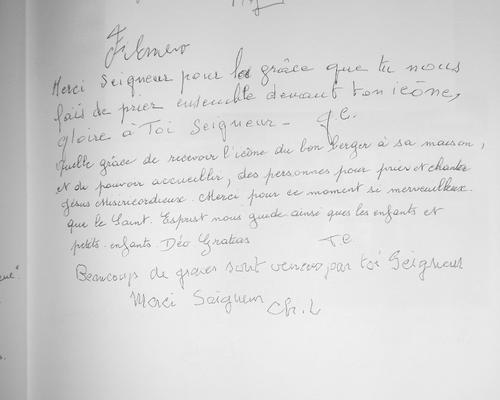 Merci Seigneur pour la grâce que tu nous
fais de prier ensemble devant ton icône,
gloire à Toi Seigneur - J.C.
Quelle grâce de recevoir l'icône du bon berger à sa maison,
et de pouvoir accueillir, des personnes pour prier et chanter
Jésus Miséricordieux. Merci pour ce moment si merveilleux.
que le Saint. Esprit nous guide ainsi ques les enfants et
petits-enfants. Déo Gratias T.C
Beaucoups de graces sont venues par toi Seigneur
Merci Seigneur Ch. L